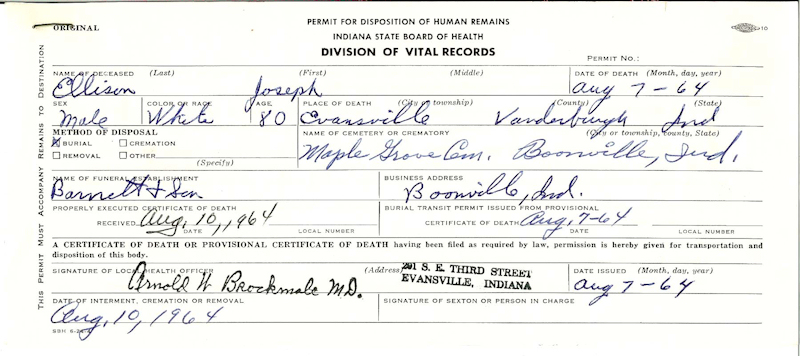 ORIGINAL
PERMIT FOR DISPOSITION OF HUMAN REMAINS
INDIANA STATE BOARD OF HEALTH
DIVISION OF VITAL RECORDS
10
PERMIT NO.:
THIS PERMIT MUST ACCOMPANY REMAINS TO DESTINATION
NAME OF DECEASED (Last) (First) (Middle) DATE OF DEATH (Month, day, year)
Ellison Joseph Aug 7-64
SEX COLOR OR RACE AGE PLACE OF DEATH (City or township) (County) (State)
Male White 80 Evansville Vanderburgh Ind
METHOD OF DISPOSAL NAME OF CEMETERY OR CREMATORY (City or township, county, State)
X BURIAL CREMATION
REMOVAL OTHER Maple Grove Cem. Boonville, Ind.
(Specify)
NAME OF FUNERAL ESTABLISHMENT BUSINESS ADDRESS
Barnett & Son Boonville, Ind.
PROPERLY EXECUTED CERTIFICATE OF DEATH BURIAL TRANSIT PERMIT ISSUED FROM PROVISIONAL
RECEIVED Aug. 10, 1964 CERTIFICATE OF DEATH Aug, 7-64
DATE LOCAL NUMBER DATE LOCAL NUMBER
A CERTIFICATE OF DEATH OR PROVISIONAL CERTIFICATE OF DEATH having been filed as required by law, permission is hereby given for transportation and
disposition of this body.
SIGNATURE OF LOCAL HEALTH OFFICER (Address) DATE ISSUED (Month, day, year)
Arnold W Brockmole M.D. 201 S. E. THIRD STREET
EVANSVILLE, INDIANA Aug 7-64
DATE OF INTERMENT, CREMATION OR REMOVAL SIGNATURE OF SEXTON OR PERSON IN CHARGE
Aug, 10, 1964